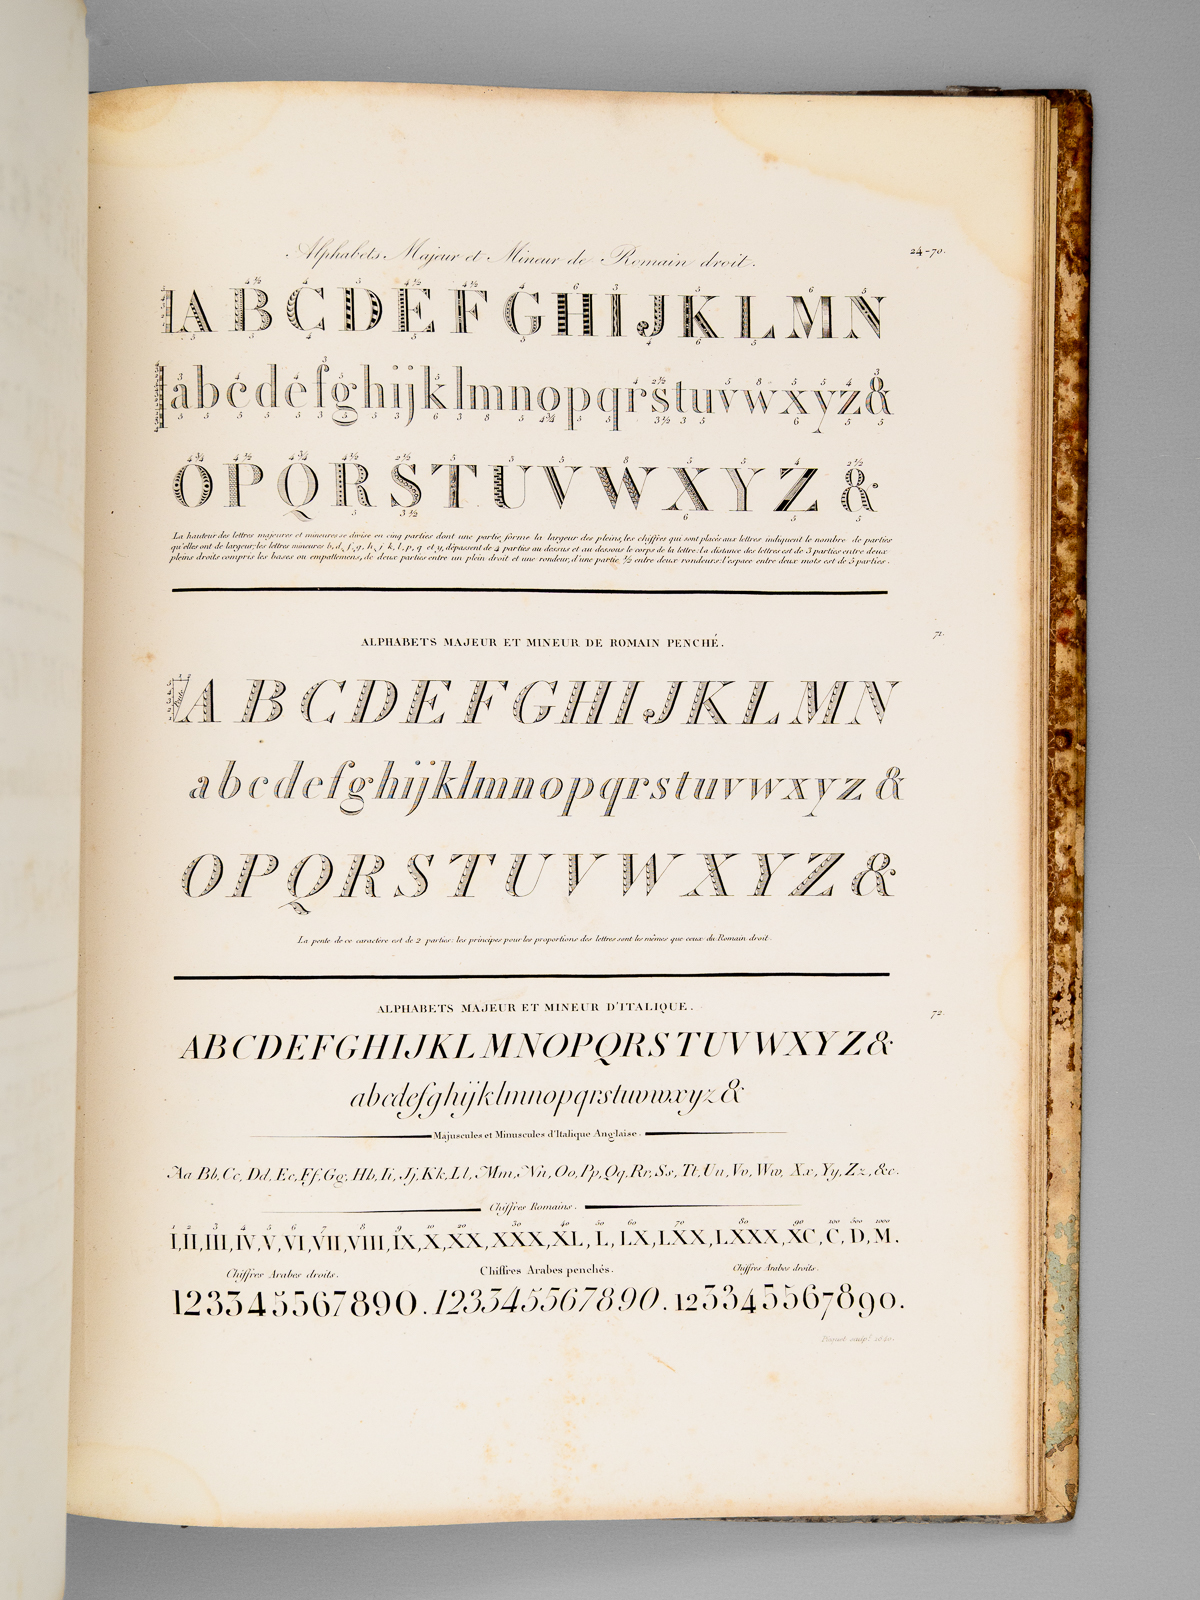 Alphabets Majeur et Mineur de Romain droit.
24-70.
A B C D E F G H I J K L M N
a b c d e f g h i j k l m n o p q r s t u v w x y z &
O P Q R S T U V W X Y Z &
La hauteur des lettres majeures et mineures se divise en cinq parties dont une partie forme la largeur des pleins, les chiffres qui sont placés aux lettres indiquent le nombre de parties
qu'elles ont de largeur; les lettres mineures b, d, f, g, h, j, k, l, p, q et y, dépassent de 4 parties au dessus et au dessous le corps de la lettre: la distance des lettres est de 3 parties entre deux
pleins droits compris les bases ou empattemens, de deux parties entre un plein droit et une rondeur, d'une partie ½ entre deux rondeurs: l'espace entre deux mots est de 5 parties.
71.
ALPHABETS MAJEUR ET MINEUR DE ROMAIN PENCHÉ.
A B C D E F G H I J K L M N
a b c d e f g h i j k l m n o p q r s t u v w x y z &
O P Q R S T U V W X Y Z &
La pente de ce caractère est de 2 parties: les principes pour les proportions des lettres sont les mêmes que ceux du Romain droit.
72.
ALPHABETS MAJEUR ET MINEUR D'ITALIQUE.
ABCDEFGHIJKLMNOPQRSTUVWXYZ&
abcdefghijklmnopqrstuvwxyz&
Majuscules et Minuscules d'Italique Anglaise.
Aa Bb, Cc, Dd, Ee, Ff, Gg, Hh, Ii, Jj, Kk, Ll, Mm, Nn, Oo, Pp, Qq, Rr, Ss, Tt, Uu, Vv, Ww, Xx, Yy, Zz, &c.
Chiffres Romains.
1 2 3 4 5 6 7 8 9 10 20 30 40 50 60 70 80 90 100 500 1000
I, II, III, IV, V, VI, VII, VIII, IX, X, XX, XXX, XL, L, LX, LXX, LXXX, XC, C, D, M.
Chiffres Arabes droits. Chiffres Arabes penchés. Chiffres Arabes droits.
123345567890. 123345567890. 123345567890.